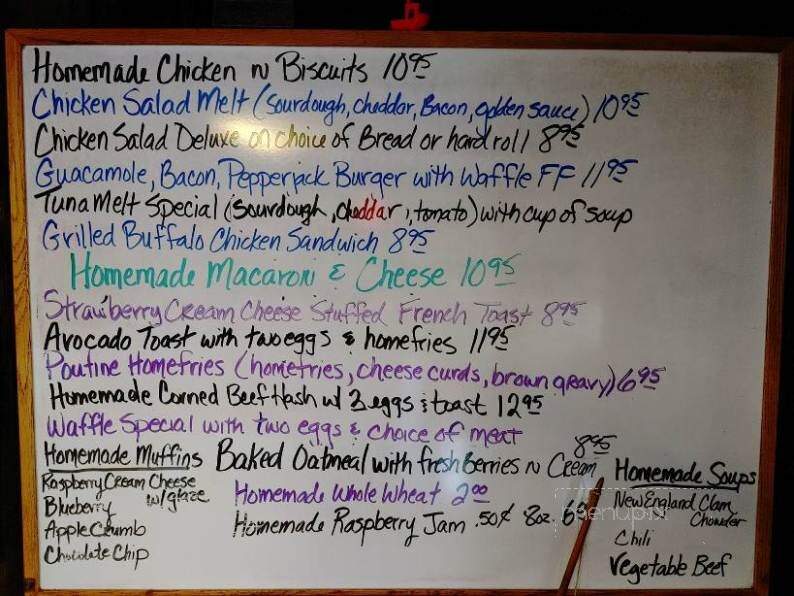 Homemade Chicken n Biscuits 10 95
Chicken Salad Melt (sourdough, cheddar, Bacon, golden sauce) 10 95
Chicken Salad Deluxe on choice of Bread or hard roll 8 95
Guacamole, Bacon, Pepperjack Burger with Waffle FF 11 95
Tuna Melt Special (sourdough, cheddar, tomato) with cup of soup
Grilled Buffalo Chicken Sandwich 8 95
Homemade Macaroni & Cheese 10 95
Strawberry Cream Cheese Stuffed French Toast 8 95
Avocado Toast with two eggs & homefries 11 95
Poutine Homefries (homefries, cheese curds, brown gravy) 6 95
Homemade Corned Beef Hash w/ 3 eggs & toast 12 95
Waffle Special with two eggs & choice of meat
8 95
Homemade Muffins
Raspberry Cream Cheese
w/glaze
Blueberry
Apple Crumb
Chocolate Chip
Baked Oatmeal with fresh Berries n Cream
Homemade Whole Wheat 2 00
Homemade Raspberry Jam .50¢ 8oz.
Homemade Soups
New England Clam
Chowder
Chili
Vegetable Beef